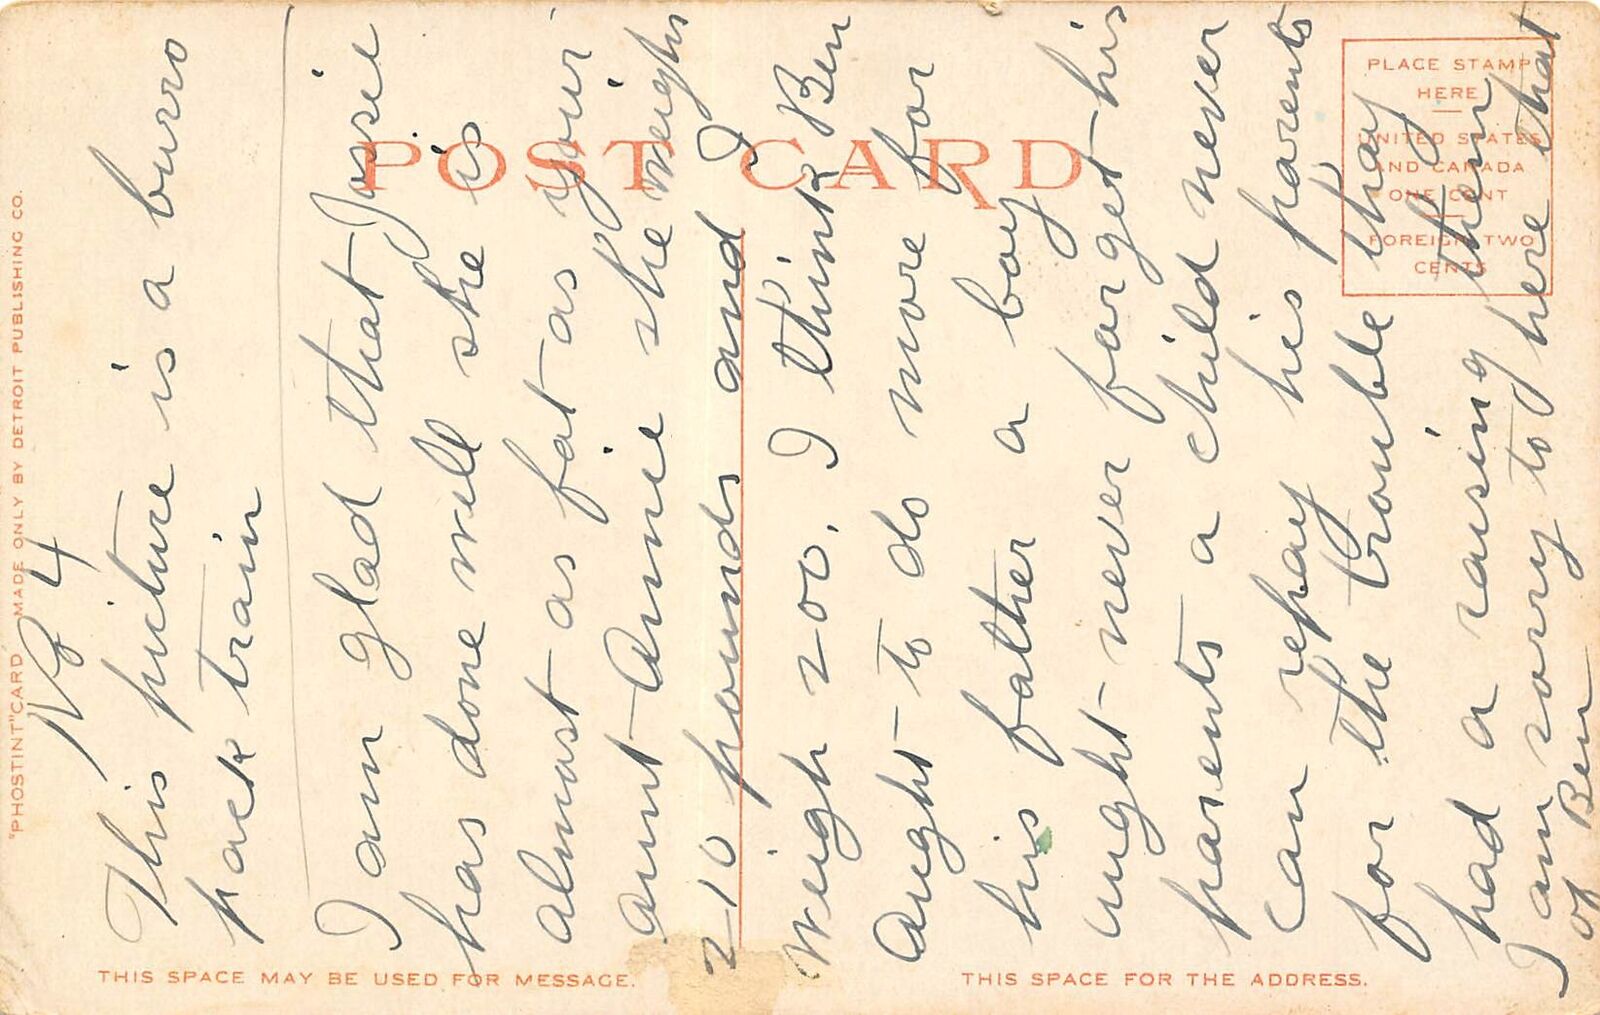 No 4
This picture is a burro
pack train
I am glad that Josie
has done well she is
almost as fat as your
aunt Annie she weighs
210 pounds and I
weigh 200. I think Ben
aught to do more for
his father a boy
aught never forget his
parents a child never
can repay his parents
for the trouble thay
had a raising them
I am sorry to here that
of Ben
POST CARD
PLACE STAMP
HERE
UNITED STATES
AND CANADA
ONE CENT
FOREIGN TWO
CENTS
"PHOSTINT" CARD MADE ONLY BY DETROIT PUBLISHING CO.
THIS SPACE MAY BE USED FOR MESSAGE.
THIS SPACE FOR THE ADDRESS.